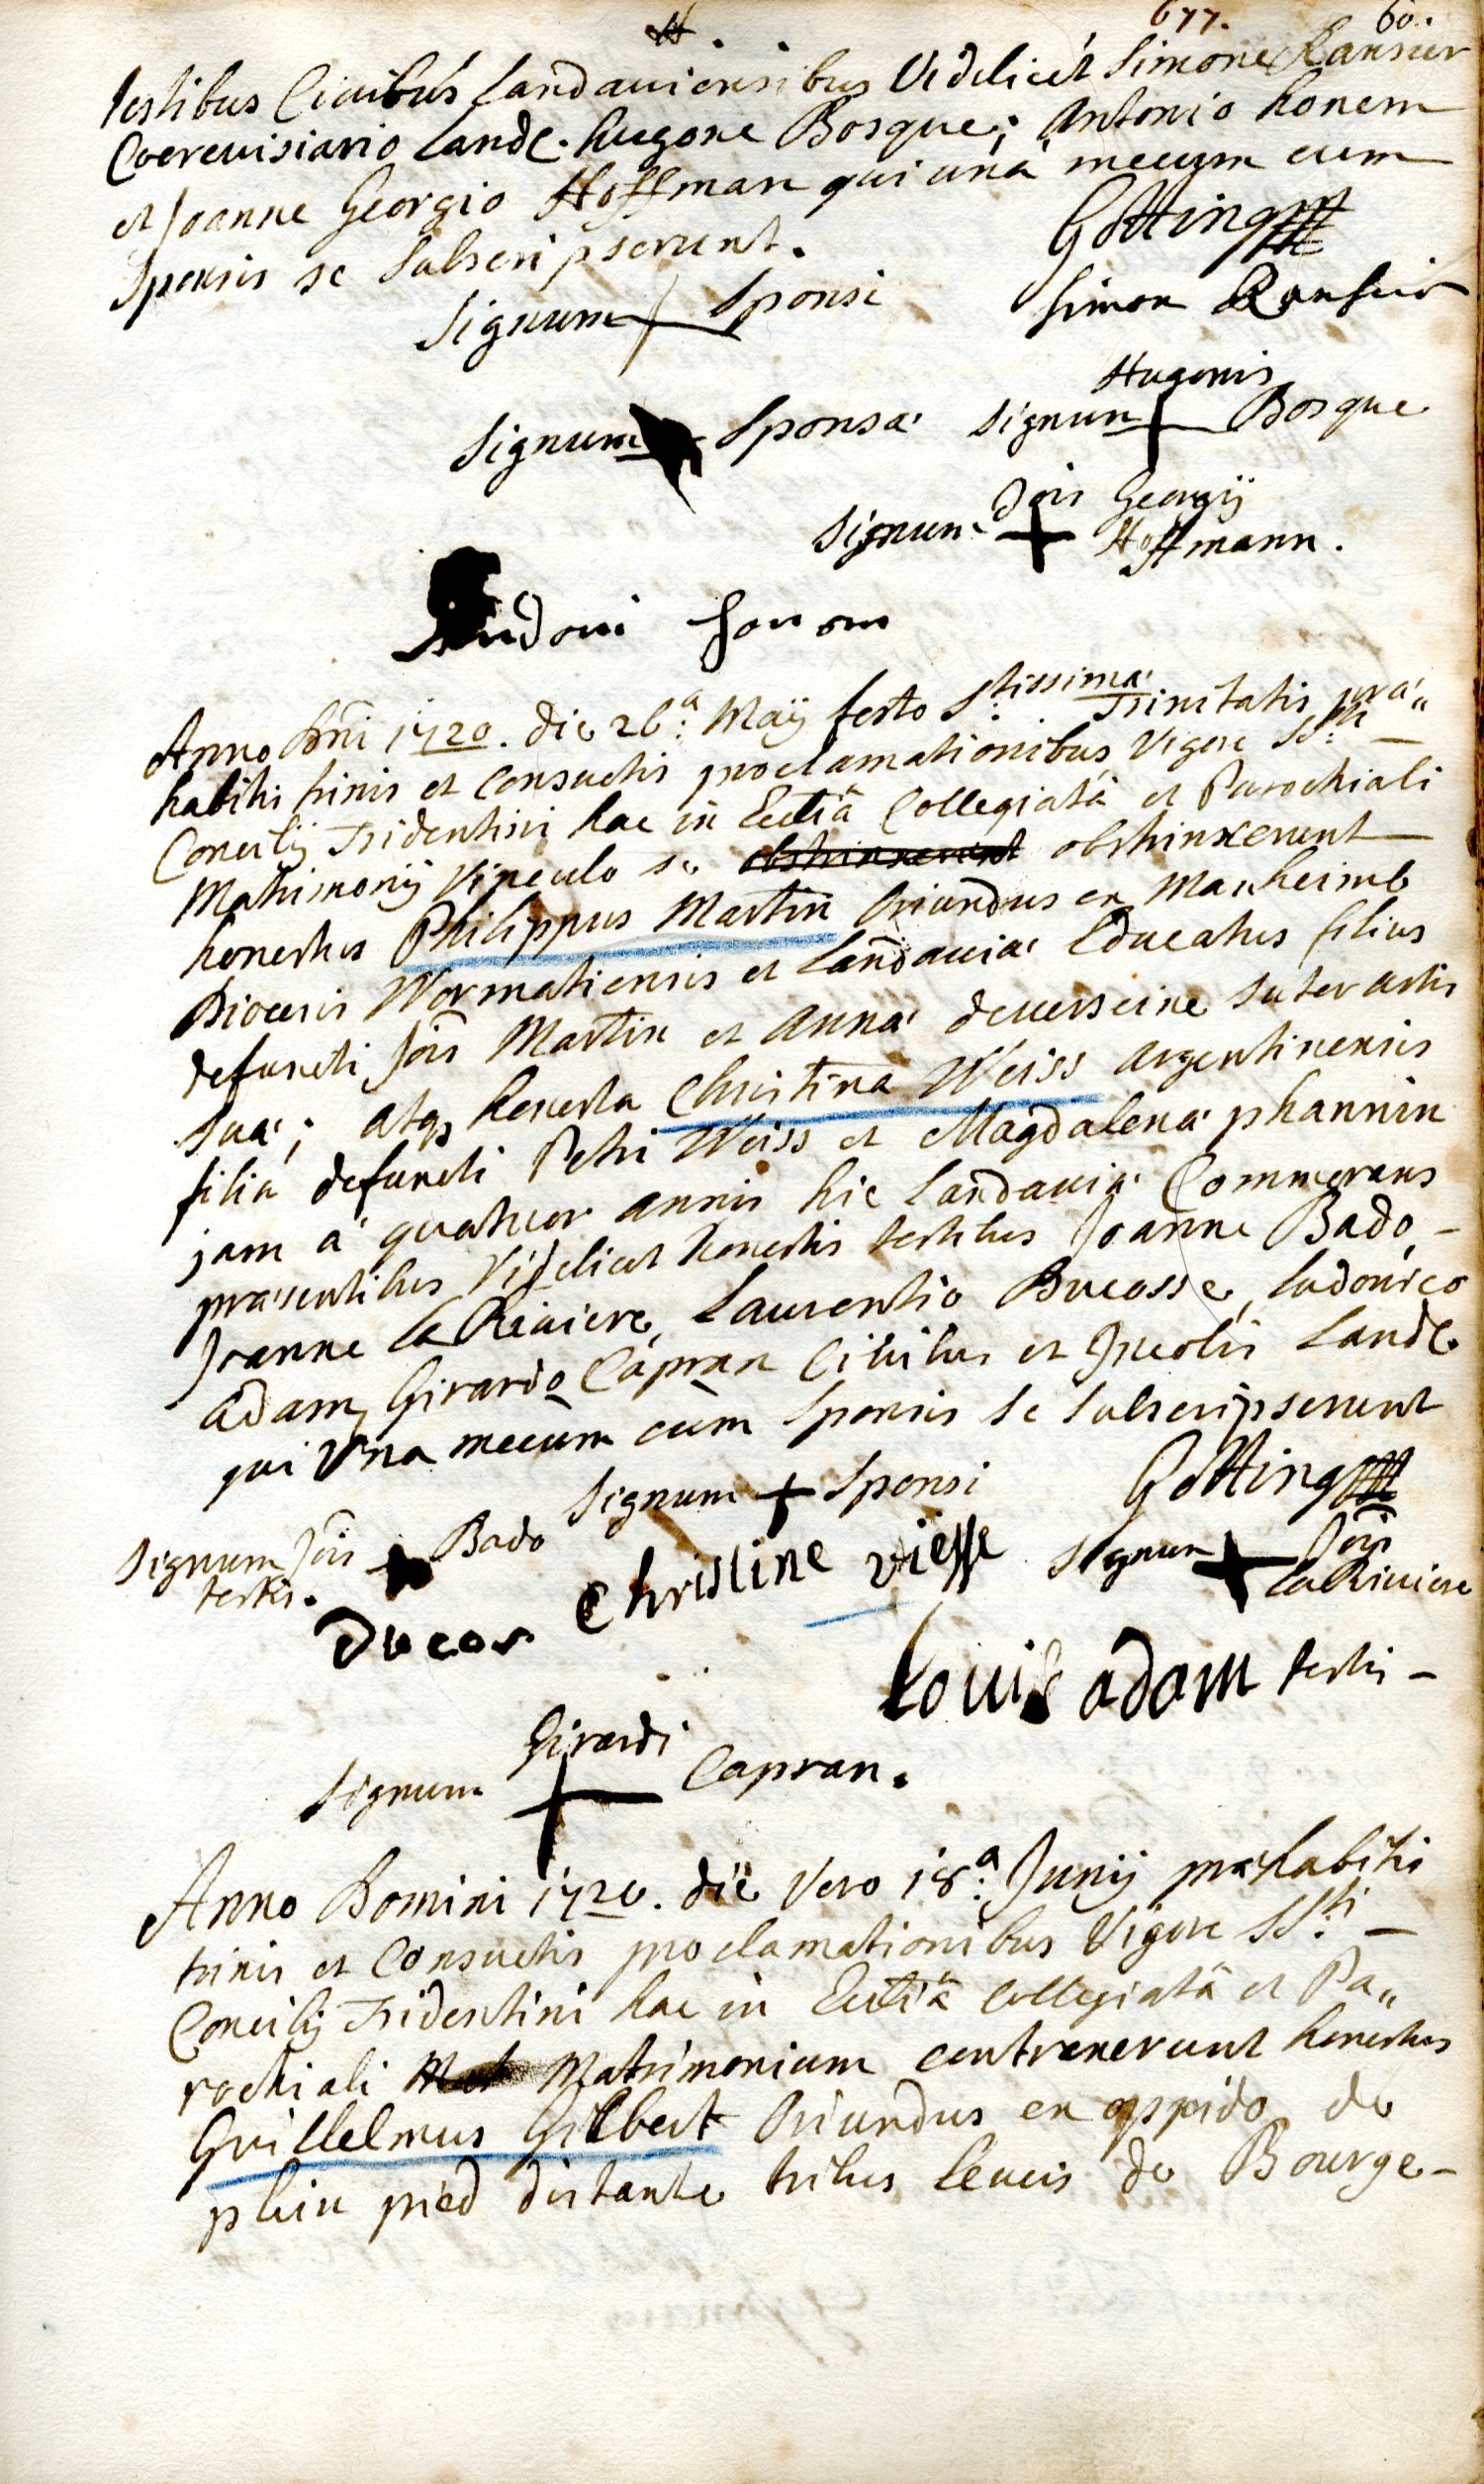 677. 60.
testibus Civibus Landaviensibus Videlicet Simone Ransier
Coerevisiario Land. hugone Bosque; Antonio honem
et Joanne Georgio Hoffman qui unà mecum cum
Sponsis se Subscripserunt.
Gotting
Signum Sponsi
Simon
Hugonis
Signum Sponsa Signum + Bosque
Jois Georgij
Signum + Hoffmann.
Anno Dni 1720. die 26.a Maij festo Stissima Trinitatis pra„
habitis trinis et Consuetis proclamationibus Vigore SS.ti
Concilij Tridentini hac in Ecclia Collegiatâ et Parochiali
Matrimonij Vinculo se obstrinxerunt obstrinxerunt
honestus Philippus Martin Oriundus ex Manheimb
Diocesis Wormatiensis et Landavia Educatus filius
defuncti Jois Martin et Anna deverseine Suter artis
sua; atq honesta Christina Weiss Argentinensis
filia defuncti Petri Weiss et Magdalena phannin
jam a quatuor annis hic Landavia Commorans
prasentibus Videlicet honestis testibus Joanne Bado,
Joanne La Riviere, Laurentio Ducosse, Ludovico
Adam, Girardo Capran Civibus et Incolis Land.
qui Vna mecum cum Sponsis se Subscripserunt
Signum + Sponsi Gotting
Signum Jois + Bado
testis.
Christine viesse Signum + Jois
La Riviere
Ducos
Louis adam testis
Girardi
Signum + Capran.
Anno Domini 1720. die Vero 18.a Junij prahabitis
trinis et Consuetis proclamationibus Vigore SS.ti
Concilij Tridentini hac in Ecclia Collegiatâ et Pa„
rochiali Matrimonium contraxerunt honestus
Guillelmus Gilbert Oriundus ex oppido de
plein pied distante tribus leucis de Bourge-